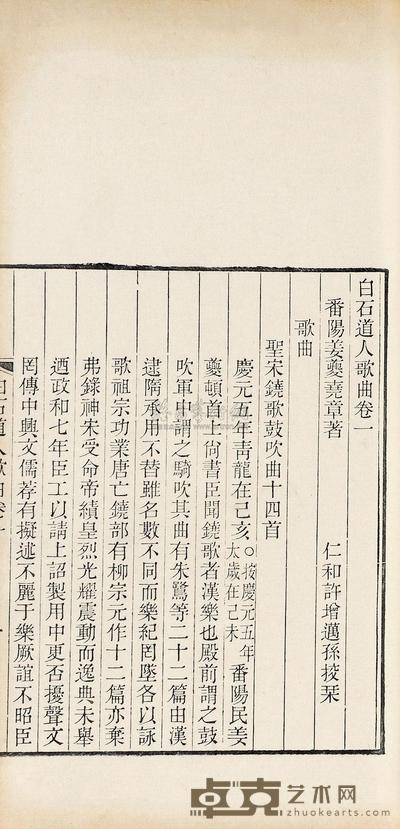 白石道人歌曲卷一
番陽姜夔堯章著 仁和許增邁孫挍栞
歌曲
聖宋鐃歌鼓吹曲十四首
慶元五年靑龍在己亥○按慶元五年太歲在己未番陽民姜
夔頓首上尙書臣聞鐃歌者漢樂也殿前謂之鼓
吹軍中謂之騎吹其曲有朱鷺等二十二篇由漢
逮隋承用不替雖名數不同而樂紀罔墜各以詠
歌祖宗功業唐亡鐃部有柳宗元作十二篇亦棄
弗錄神宋受命帝績皇烈光耀震動而逸典未舉
迺政和七年臣工以請上詔製用中更否擾聲文
罔傳中興文儒荐有擬述不麗于樂厥誼不昭臣
白石道人歌曲卷一
卓克艺术网
zhuokearts.com